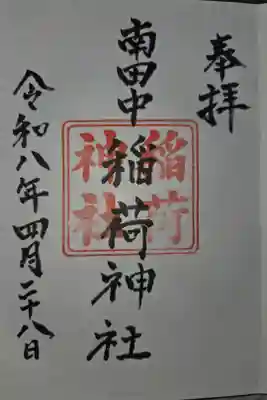 奉拝
南田中稲荷神社
稲荷
神社
令和八年四月二十八日